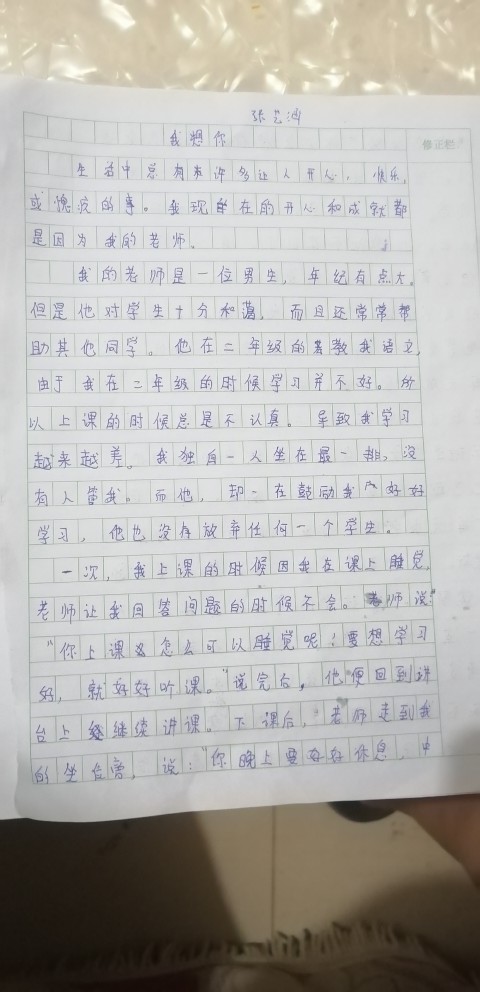 张艺鸿
我想你
修正栏
生活中总有有许多让人开心，快乐，
或愧疚的事。我现在的开心和成就都
是因为我的老师。
我的老师是一位男生，年纪有点大。
但是他对学生十分和蔼，而且还常常帮
助其他同学。他在二年级的教我语文，
由于我在二年级的时候学习并不好。所
以上课的时候总是不认真。导致我学习
越来越差。我独自一人坐在最一排，没
有人管我。而他，却一在鼓励我好好
学习，他也没有放弃任何一个学生。
一次，我上课的时候因我在课上睡觉，
老师让我回答问题的时候不会。老师说：
“你上课怎么可以睡觉呢！要想学习
好，就好好听课。”说完后，他便回到讲
台上继续讲课。下课后，老师走到我
的坐位旁，说：“你晚上要好好休息，中